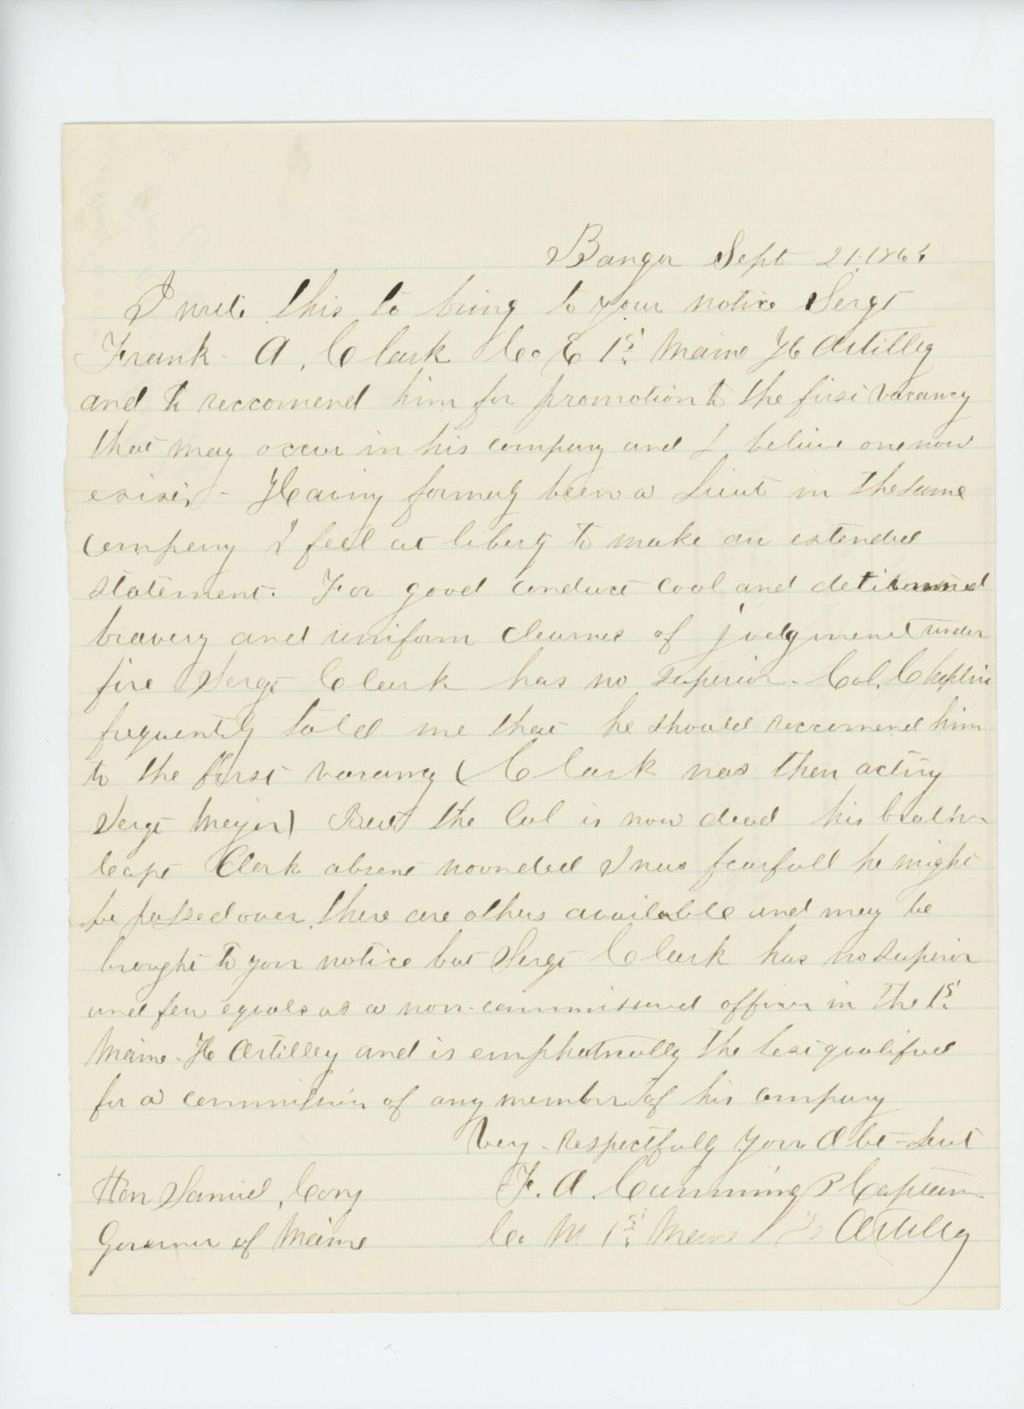 Bangor Sept 21, 1864
I write this to bring to your notice Sergt
Frank A. Clark Co. E 1st Maine H Artillery
and to reccomend him for promotion to the first vacancy
that may occur in his company and I believe one now
exists - Having formerly been a Lieut in the same
company I feel at liberty to make an extended
statement. For good conduct cool and determined
bravery and uniform clearnes of judgment under
fire Sergt Clark has no superior. Col. Chaplin
frequently told me that he should reccomend him
to the first vacancy (Clark was then acting
Sergt Major) But the Col is now dead his brother
Capt Clark absent wounded I was fearfull he might
be passed over. there are others available and may be
brought to your notice but Sergt Clark has no superior
and few equals as a non-commissioned officer in the 1st
Maine H Artillery and is emphatically the best qualified
for a commission of any member of his company
Very Respectfully Your Obt Servt
Hon Samuel Cony F. A. Cummings Captain
Governor of Maine Co. M 1st Maine H Artillery